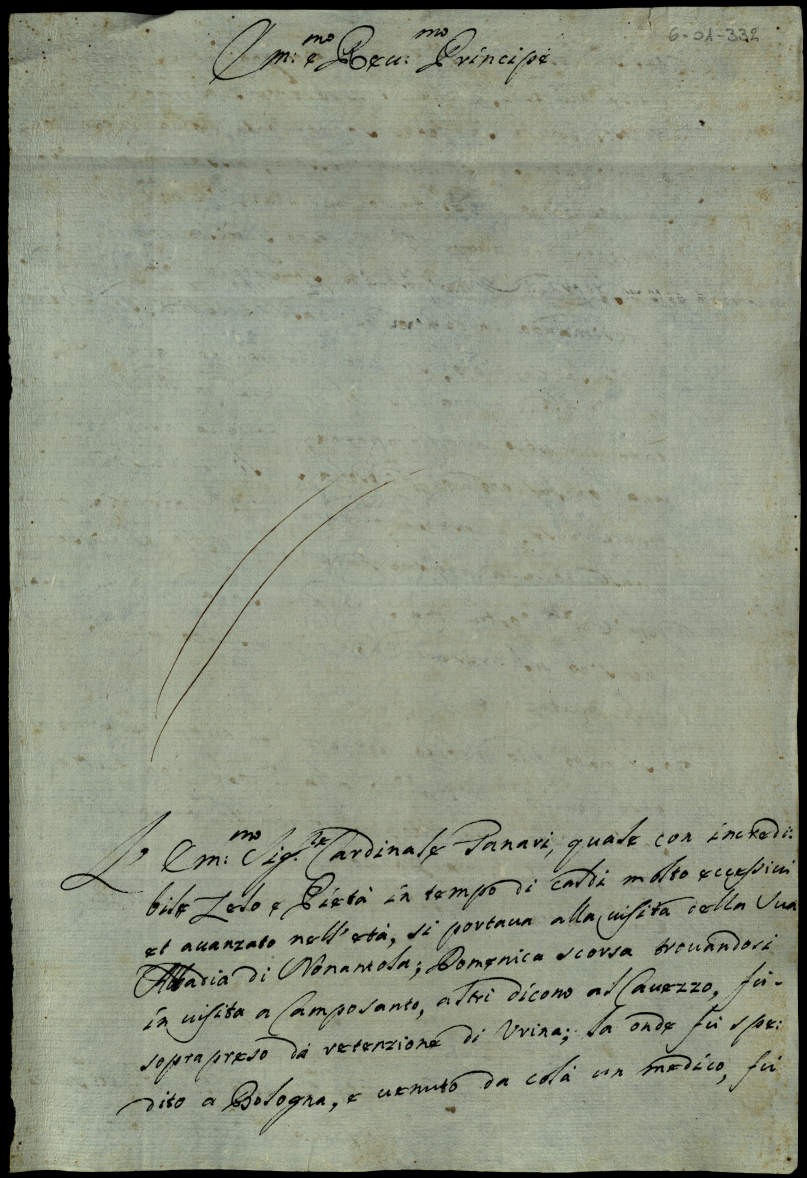 6-01-332
Em:mo e Reu:mo Principe
L'Em:mo Sig.re Cardinale Tanari, quale con incredi:
bile Zelo e Pietà in tempo di caldi molto eccessiui
et auanzato nell'età, si portaua alla uisita della sua
Abbadia di Nonantola; Domenica scorsa trouandosi
in uisita a Camposanto, altri dicono al Cauezzo, fù
soprapreso da retenzione di Vrina; la onde fù spe:
dito a Bologna, e uenuto da colà un medico, fù